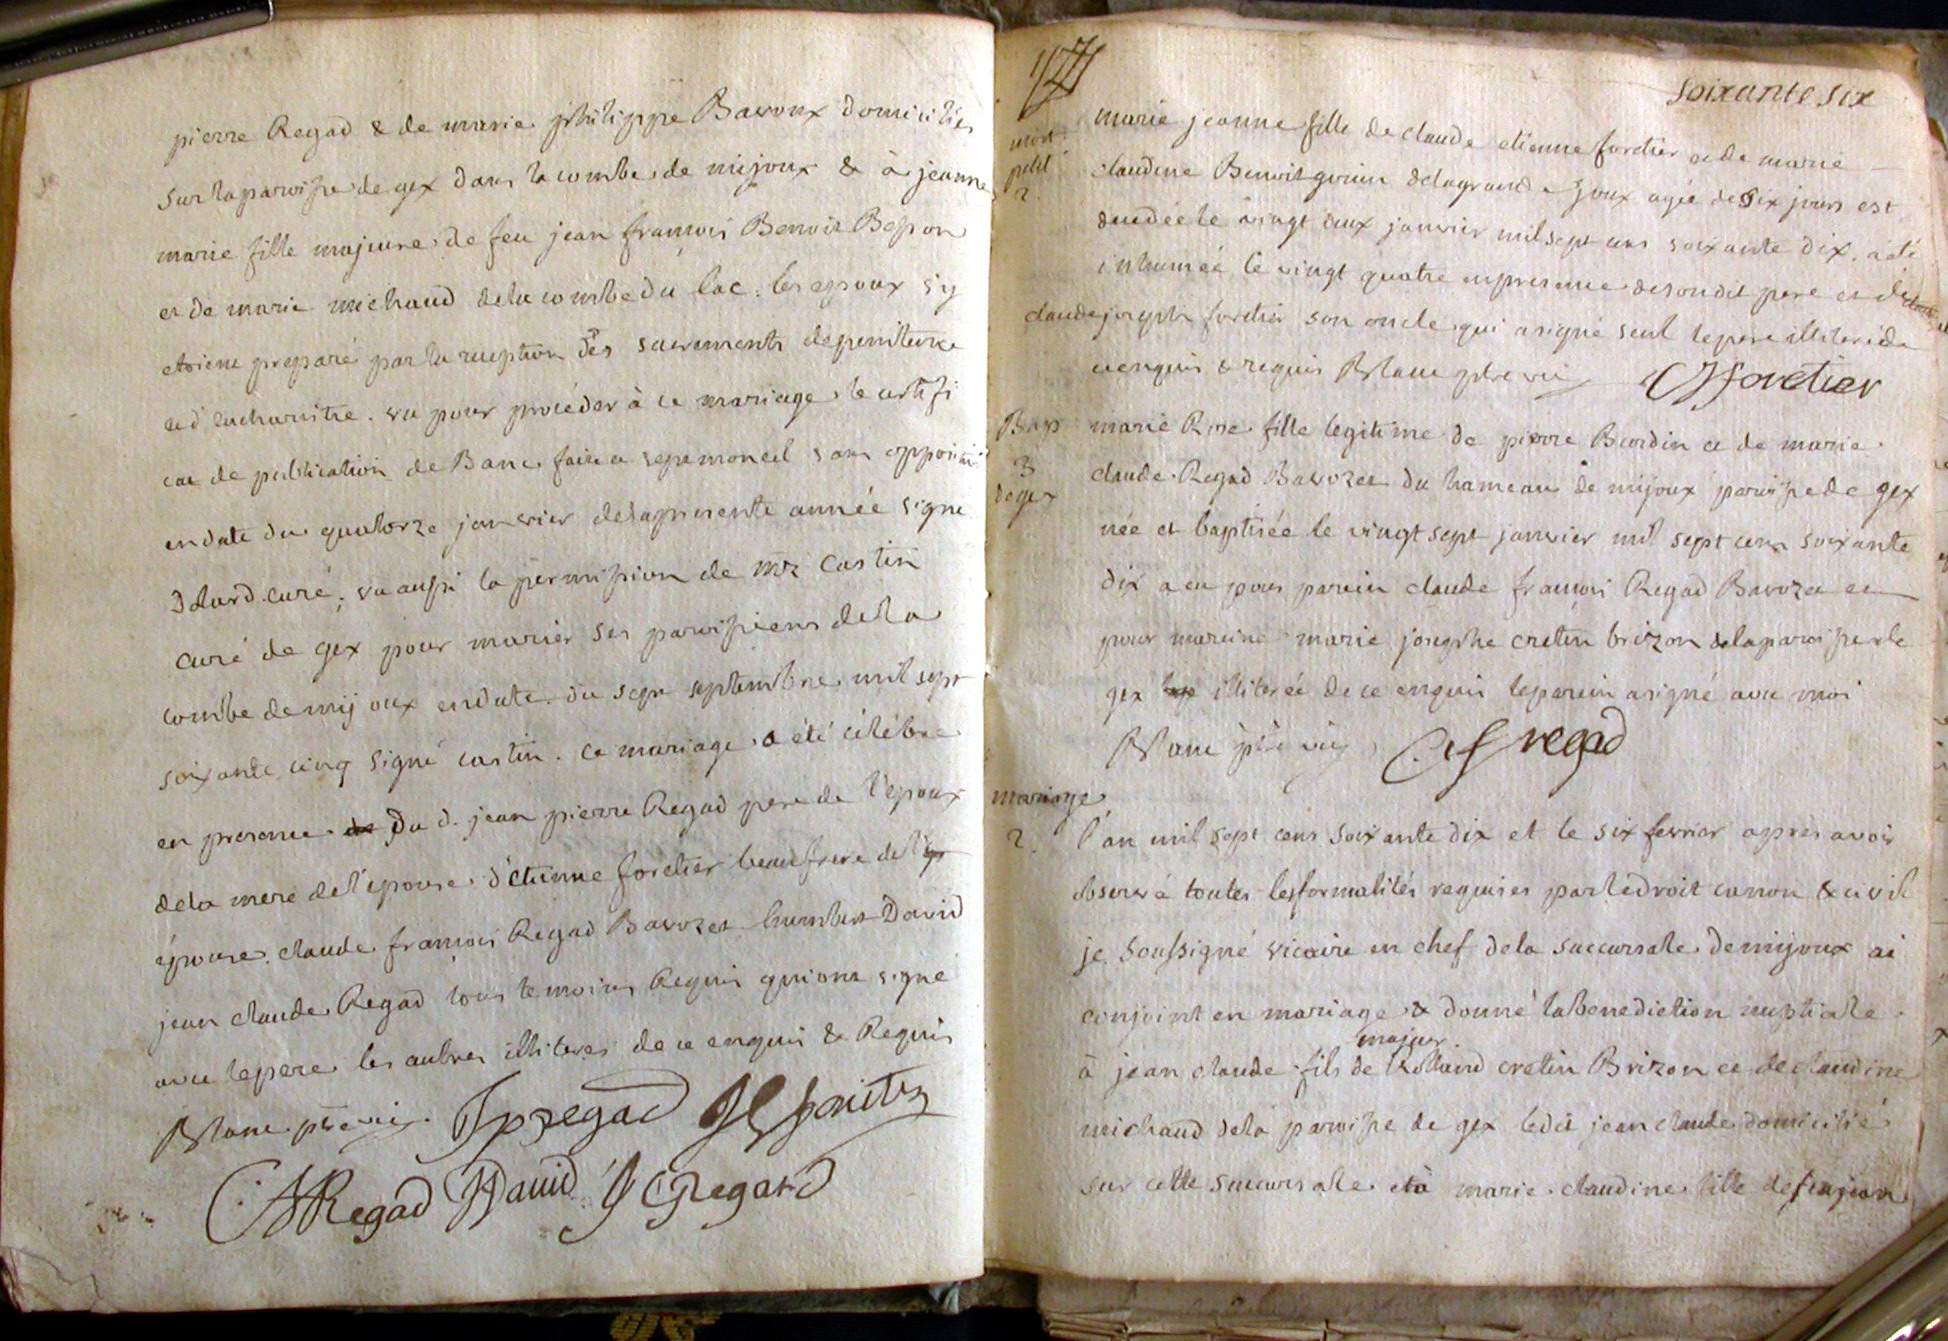 pierre Regad & de marie philippe Bavoux domiciliés
sur la paroisse de gex dans la combe de mijoux & à jeanne
marie fille majeure de feu jean françois Benoit Besson
et de marie michaud dela combe du lac. les epoux s'y
etoient preparé par la reception des sacrements de penitence
et d'eucharistie. vu pour procéder à ce mariage le certifi
cat de publication de Banc faite a septmoncel sans oppositi
en date du quatorze janvier delapresente année signé
curé, vu aussi la permission de mr castin
curé de gex pour marier ses paroissiens dela
combe de mijoux endate du sept septembre mil sept
soixante cinq signé castin. ce mariage a été célébre
en presence du d. jean pierre Regad pere de l'epoux
dela mere del'epouse d'étienne forétier beaufrere del'
épouse. claude françois Regad Bavozet humbert David
jean claude Regad tous temoins Requis qui ont signé
avec lepere les autres illiteres de ce enquis & Requis
Blanc ptre vic. Jp regad
C f Regad David J C Regard
soixante six
mort
petit
2.
marie jeanne fille de claude etienne foretier et de marie
claudine Benoit gonin delagrande Joux agée de six jours est
decedée le vingt deux janvier mil sept cens soixante dix. a été
inhumée le vingt quatre enpresence desondit pere et de
claude joseph foretier son oncle qui a signé seul le pere illiteré de
ce enquis & requis Blanc ptre vic CJ foretier
Bap
3
de gex
marie Rose fille legitime de pierre Burdin et de marie
claude Regad Bavozet du hameau de mijoux paroisse de gex
née et baptisée le vingt sept janvier mil sept cens soixante
dix a eu pour parein claude françois Regad Bavozet et
pour mareine marie josephe cretin brizon delaparoisse de
gex illiterée de ce enquis leparein a signé avec moi
Blanc ptre vic C f regad
mariage
2.
l'an mil sept cens soixante dix et le six fevrier après avoir
observé toutes lesformalités requises parledroit canon & civil
je soussigné vicaire en chef dela succursale demijoux ai
conjoint en mariage & donné labenediction nuptiale
majeur
à jean claude fils de Rolland cretin Brizon et de claudine
michaud dela paroisse de gex ledit jean claude domicilié
sur cette succursale età marie claudine fille defeujean